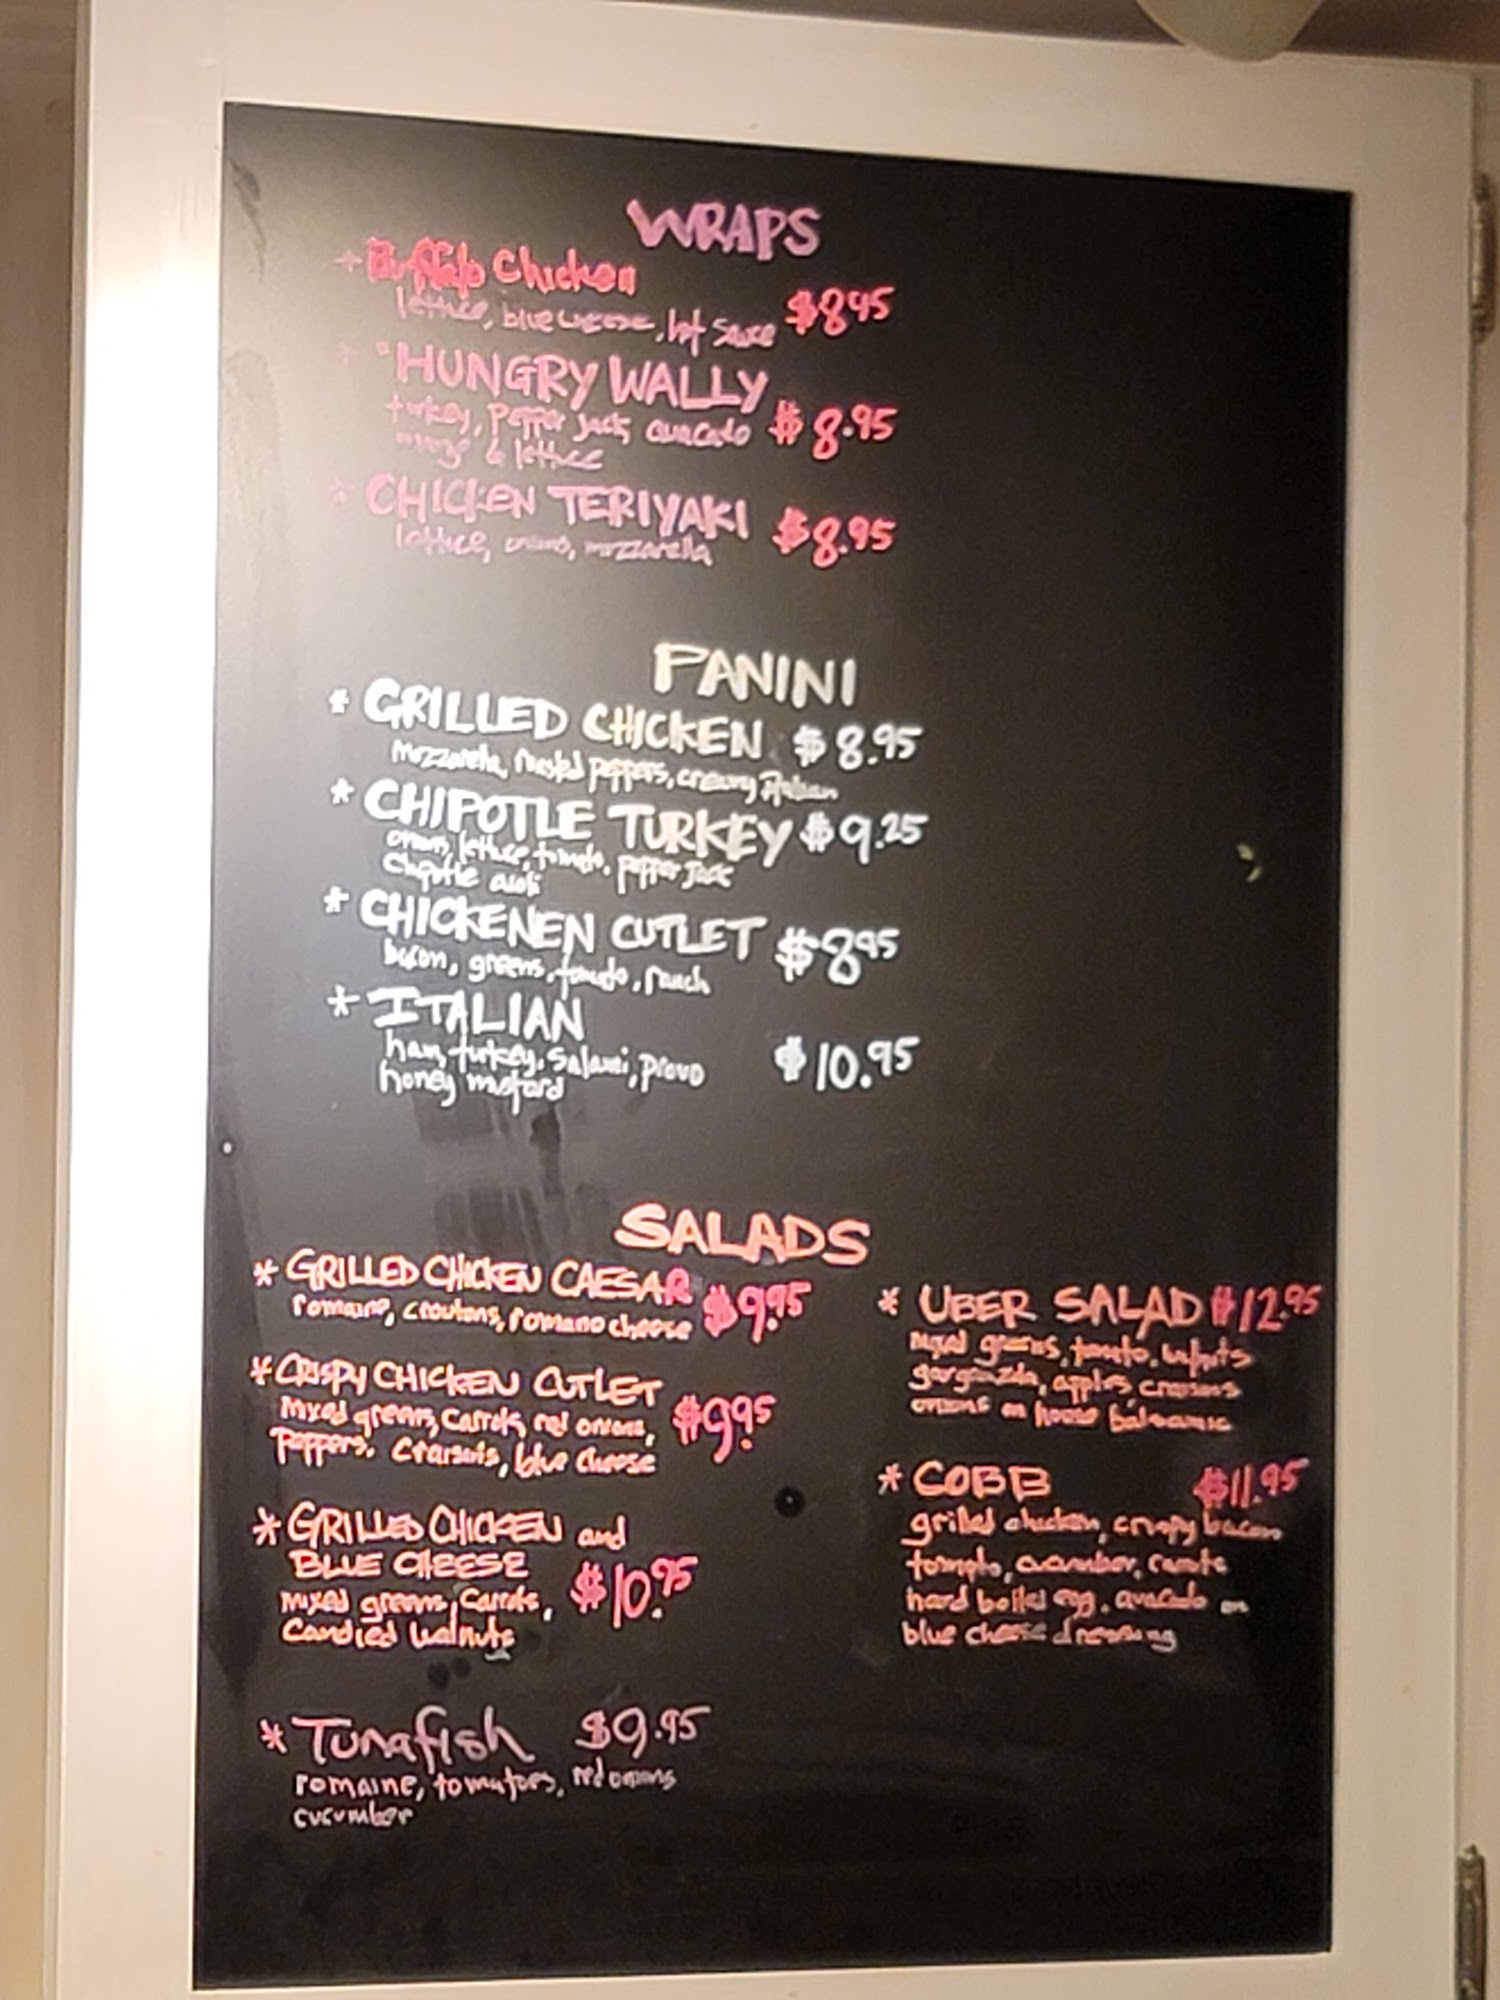 WRAPS
* Buffalo Chicken
lettuce, blue cheese, hot sauce $8.95
* HUNGRY WALLY
turkey, pepper jack, avacado $8.95
mayo & lettuce
* CHICKEN TERIYAKI $8.95
lettuce, onions, mozzarella
PANINI
* GRILLED CHICKEN $8.95
mozzarella, roasted peppers, creamy italian
* CHIPOTLE TURKEY $9.25
onions, lettuce, tomato, pepper jack
chipotle aioli
* CHICKENEN CUTLET $8.95
bacon, greens, tomato, ranch
* ITALIAN
ham, turkey, salami, provo $10.95
honey mustard
SALADS
* GRILLED CHICKEN CAESAR $9.95
romaine, croutons, romano cheese
* CRISPY CHICKEN CUTLET $9.95
mixed greens, carrots, red onions,
peppers, craisins, blue cheese
* GRILLED CHICKEN and
BLUE CHEESE $10.95
mixed greens, carrots,
candied walnuts
* Tunafish $9.95
romaine, tomatoes, red onions
cucumber
* UBER SALAD $12.95
mixed greens, tomato, walnuts
gorgonzola, apples craisins
onions on house balsamic
* COBB $11.95
grilled chicken, crispy bacon
tomato, cucumber, carrots
hard boiled egg, avacado on
blue cheese dressing